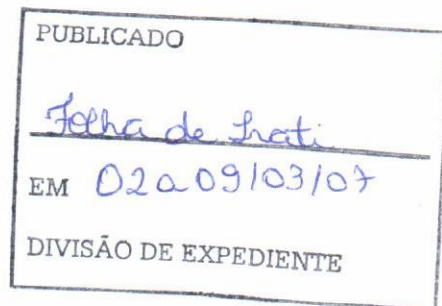 PUBLICADO
Folha de Irati
EM 02 a 09/03/07
DIVISÃO DE EXPEDIENTE